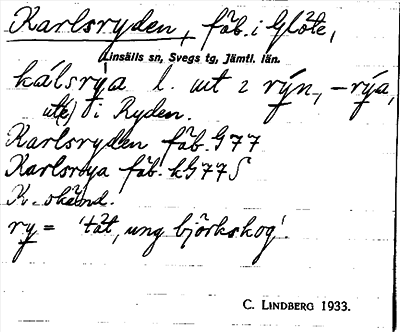 Karlsryden, fäb. i Glöte,
Linsälls sn, Svegs tg, Jämtl. län.
kálsrỳa l. ut 2 rýn, -rýa,
ute) i Ryden.
Karlsryden fäb. G77
Karlsrya fäb. kG77S
K. okänd.
ry = 'tät, ung björkskog'.
C. LINDBERG 1933.